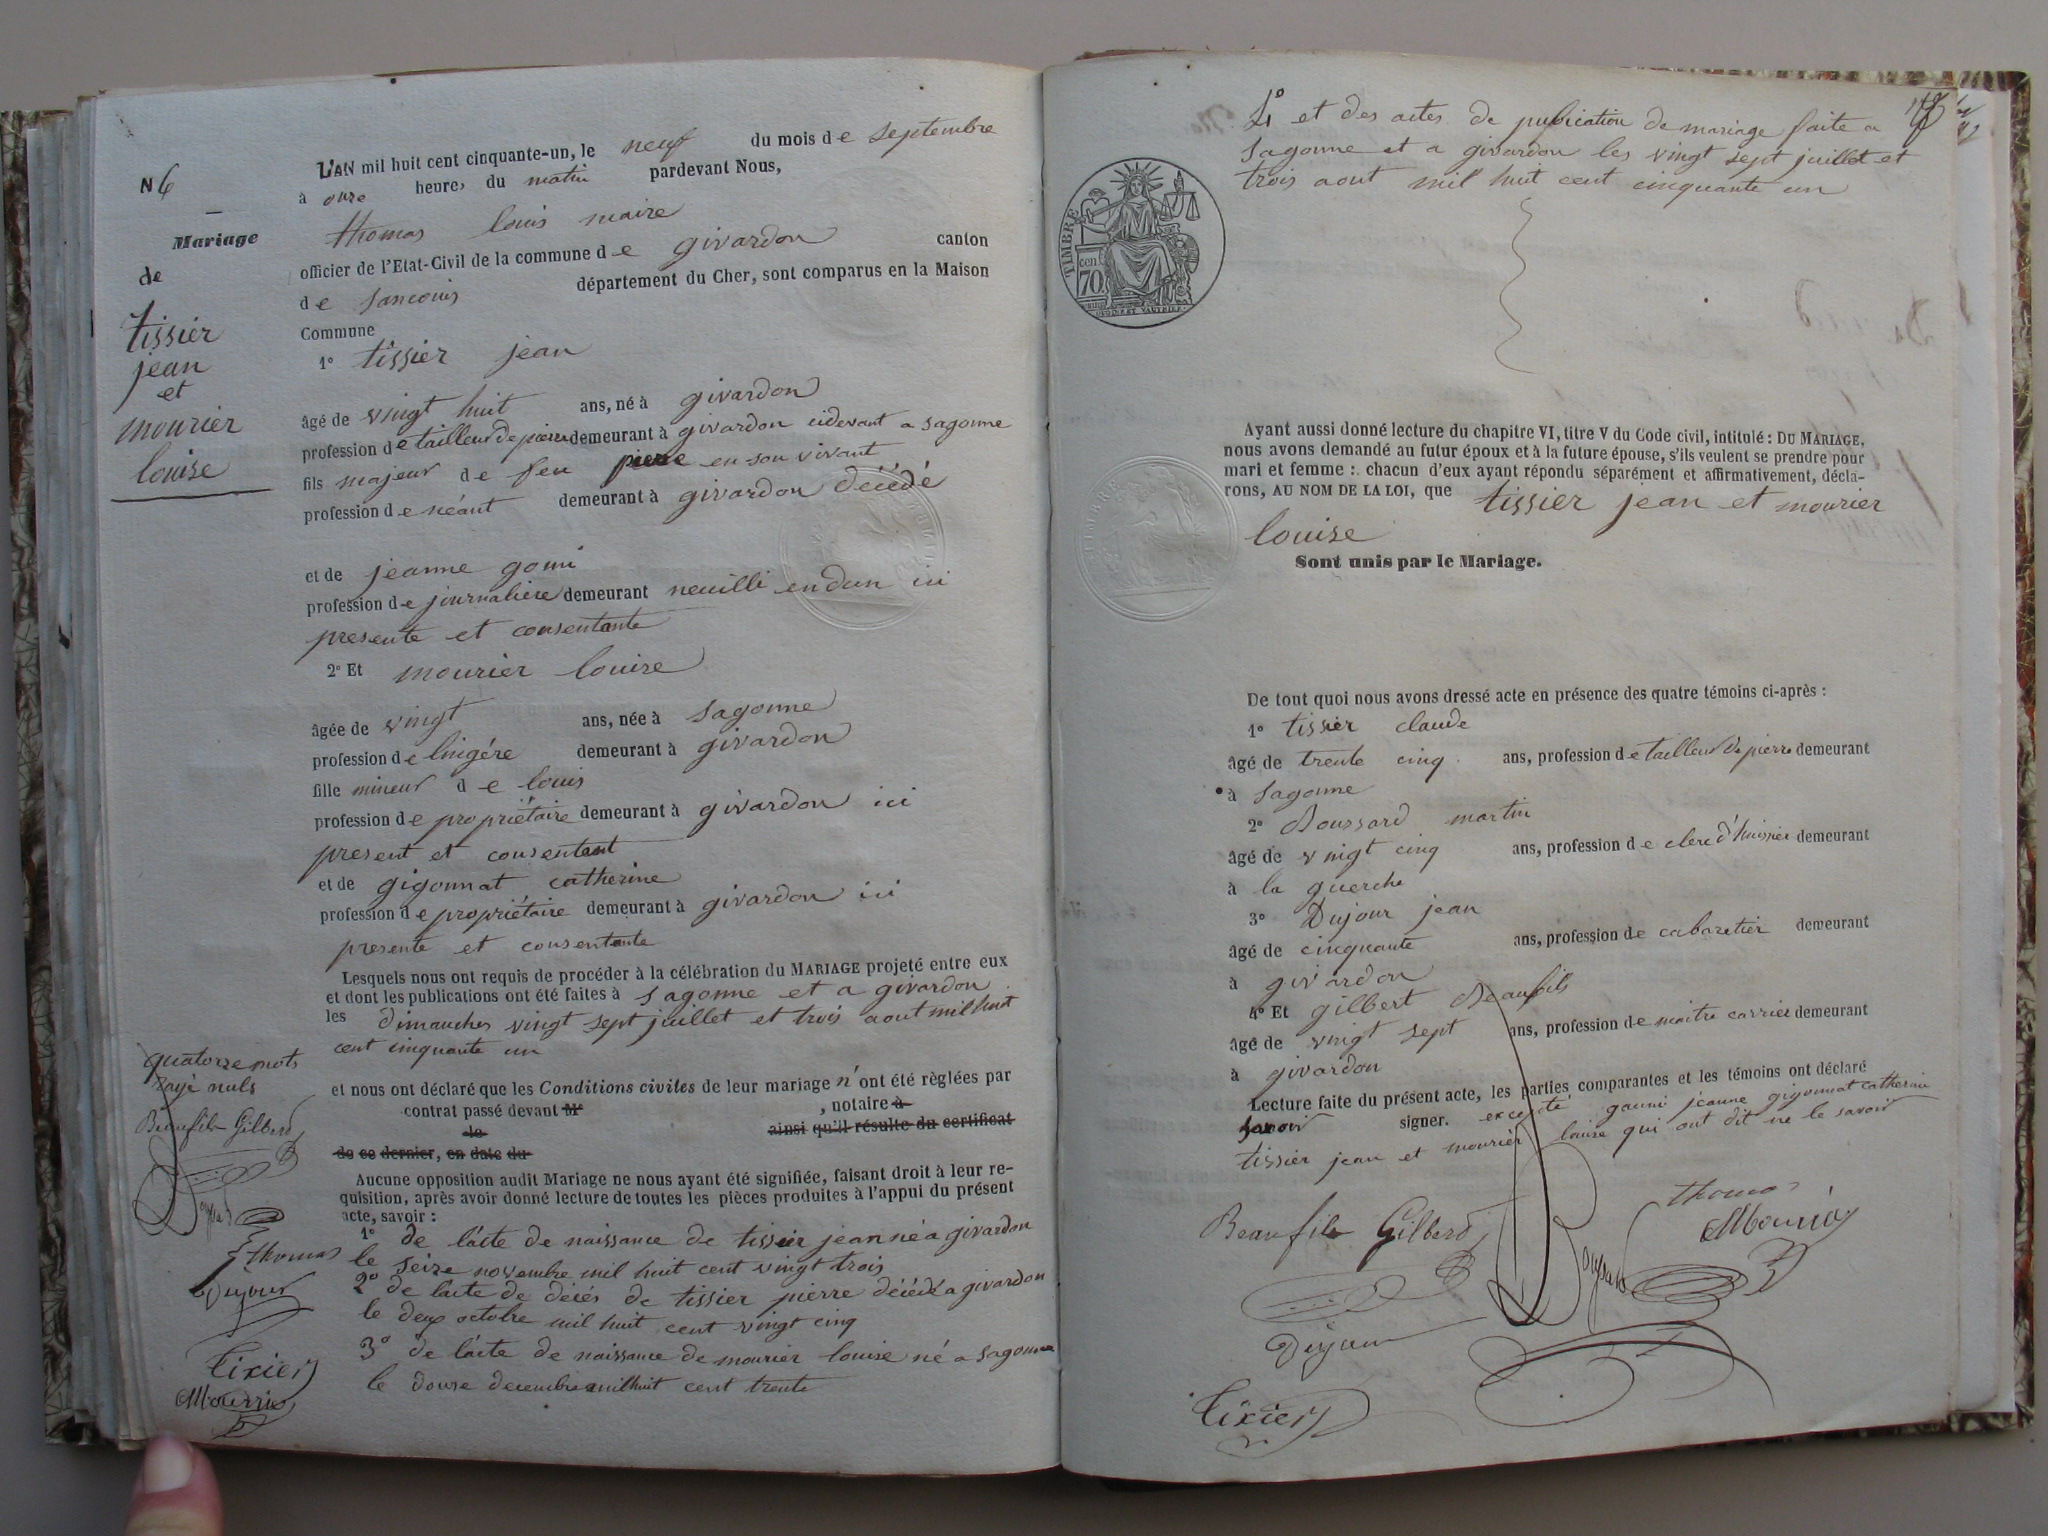 N 6
Mariage
de
tissier
jean
et
mourier
louise
L'AN mil huit cent cinquante-un, le neuf du mois de septembre
à onze heures du matin pardevant Nous,
thomas louis maire
officier de l'Etat-Civil de la commune de givardon canton
de sancoins département du Cher, sont comparus en la Maison
Commune
1° tissier jean
âgé de vingt huit ans, né à givardon
profession de tailleur de pierre demeurant à givardon cidevant a sagonne
fils majeur de feu pierre en son vivant
profession de néant demeurant à givardon décédé
et de jeanne gomi
profession de journalière demeurant neuilli en dun ici
presente et consentante
2° Et mourier louise
âgée de vingt ans, née à sagonne
profession de lingére demeurant à givardon
fille mineur de louis
profession de propriétaire demeurant à givardon ici
present et consentant
et de gigonnat catherine
profession de propriétaire demeurant à givardon ici
presente et consentante
Lesquels nous ont requis de procéder à la célébration du MARIAGE projeté entre eux
et dont les publications ont été faites à sagonne et a givardon
les dimanches vingt sept juillet et trois aout mil huit
cent cinquante un
et nous ont déclaré que les Conditions civiles de leur mariage n'ont été règlées par
contrat passé devant Me , notaire à
le ainsi qu'il résulte du certificat
de ce dernier, en date du
Aucune opposition audit Mariage ne nous ayant été signifiée, faisant droit à leur re-
quisition, après avoir donné lecture de toutes les pièces produites à l'appui du présent
acte, savoir :
1° de l'acte de naissance de tissier jean né a givardon
le seize novembre mil huit cent vingt trois
2° de l'acte de décés de tissier pierre décédé a givardon
le deux octobre mil huit cent vingt cinq
3° de l'acte de naissance de mourier louise né a sagonne
le douse decembre mil huit cent trente
quatorze mots
rayé nuls
Beaufils Gilberd
thomas
Dujour
Tixier
Mourrier
4° et des actes de pubication de mariage faite a
sagonne et a givardon les vingt sept juillet et
trois aout mil huit cent cinquante un
TIMBRE
cen.
70.
Ayant aussi donné lecture du chapitre VI, titre V du Code civil, intitulé : DU MARIAGE,
nous avons demandé au futur époux et à la future épouse, s'ils veulent se prendre pour
mari et femme : chacun d'eux ayant répondu séparément et affirmativement, décla-
rons, AU NOM DE LA LOI, que tissier jean et mourier
louise
Sont unis par le Mariage.
De tout quoi nous avons dressé acte en présence des quatre témoins ci-après :
1° tissier claude
âgé de trente cinq ans, profession de tailleur de pierre demeurant
à sagonne
2° Boussard martin
âgé de vingt cinq ans, profession de clerc d'huissier demeurant
à la guerche
3° Dujour jean
âgé de cinquante ans, profession de cabaretier demeurant
à givardon
4° Et gilbert Beaufils
âgé de vingt sept ans, profession de maitre carrier demeurant
à givardon
Lecture faite du présent acte, les parties comparantes et les témoins ont déclaré
savoir signer. excepté gaumi jeanne gigonnat catherine
tissier jean et mourier louise qui ont dit ne le savoir
thomas
Beaufils Gilberd
Dujour
Tixier